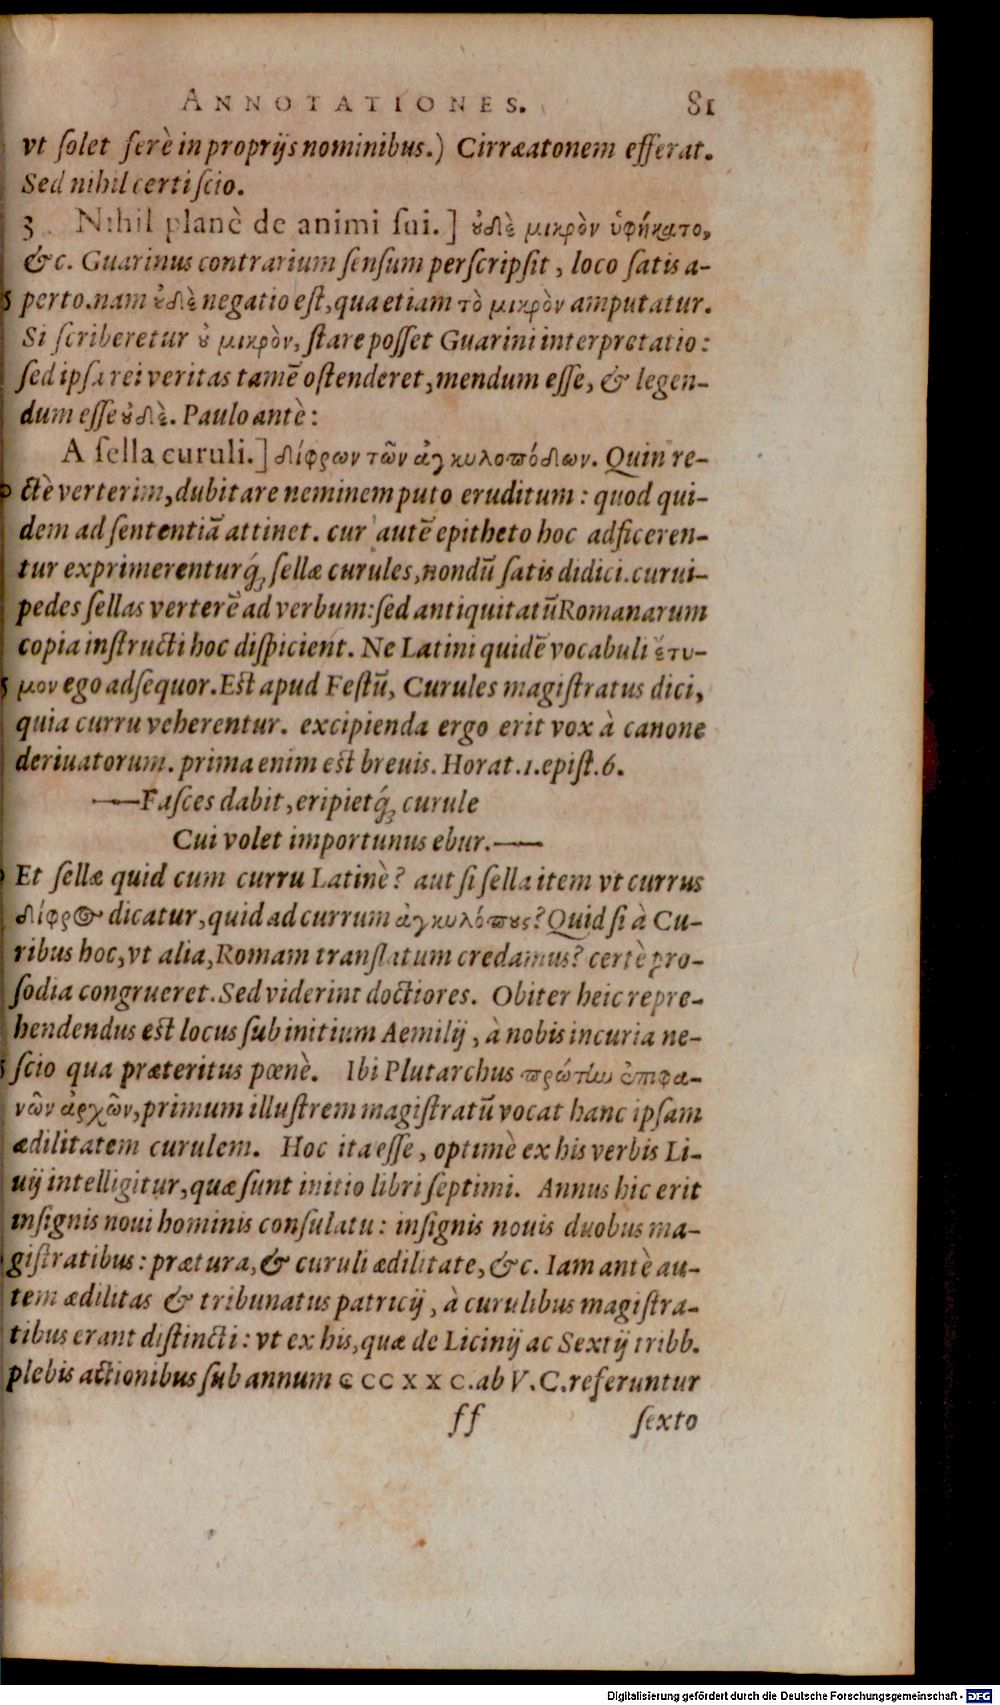 ANNOTATIONES. 81
vt ſolet ferè in proprijs nominibus.) Cirræatonem efferat.
Sed nihil certi ſcio.
3 Nihil planè de animi ſui.] ȣ̓δὲ μικρὸν ὑφήκατο,
&c. Guarinus contrarium ſenſum perſcripſit, loco ſatis a-
5 perto. nam ȣ̓δὲ negatio eſt, qua etiam τὸ μικρὸν amputatur.
Si ſcriberetur ȣ̓ μικρὸν, ſtare poſſet Guarini interpretatio:
ſed ipſa rei veritas tamē oſtenderet, mendum eſſe, & legen-
dum eſſe ȣ̓δὲ. Paulo antè:
A ſella curuli.] δίφρων τῶν ἀγκυλοπόδων. Quin re-
ctè verterim, dubitare neminem puto eruditum: quod qui-
dem ad ſententiā attinet. cur autē epitheto hoc adficeren-
tur exprimerenturq́; ſellæ curules, nondū ſatis didici. curui-
pedes ſellas verterē ad verbum: ſed antiquitatū Romanarum
copia inſtructi hoc diſpicient. Ne Latini quidē vocabuli ἔτυ-
5 μον ego adſequor. Eſt apud Feſtū, Curules magiſtratus dici,
quia curru veherentur. excipienda ergo erit vox à canone
deriuatorum. prima enim eſt breuis. Horat. 1. epiſt. 6.
—Faſces dabit, eripietq́; curule
Cui volet importunus ebur.—
Et ſellæ quid cum curru Latinè? aut ſi ſella item vt currus
δίφρος dicatur, quid ad currum ἀγκυλόπους? Quid ſi à Cu-
ribus hoc, vt alia, Romam translatum credamus? certè pro-
ſodia congrueret. Sed viderint doctiores. Obiter heic repre-
hendendus eſt locus ſub initium Aemilij, à nobis incuria ne-
5 ſcio qua præteritus pœnè. Ibi Plutarchus πρώτην ἐπιφα-
νῶν ἀρχῶν, primum illuſtrem magiſtratū vocat hanc ipſam
ædilitatem curulem. Hoc ita eſſe, optimè ex his verbis Li-
uij intelligitur, quæ ſunt initio libri ſeptimi. Annus hic erit
inſignis noui hominis conſulatu: inſignis nouis duobus ma-
giſtratibus: prætura, & curuli ædilitate, &c. Iam antè au-
tem ædilitas & tribunatus patricij, à curulibus magiſtra-
tibus erant diſtincti: vt ex his, quæ de Licinij ac Sextij tribb.
plebis actionibus ſub annum CCCXXC. ab V. C. referuntur
ff ſexto
Digitalisierung gefördert durch die Deutsche Forschungsgemeinschaft - DFG